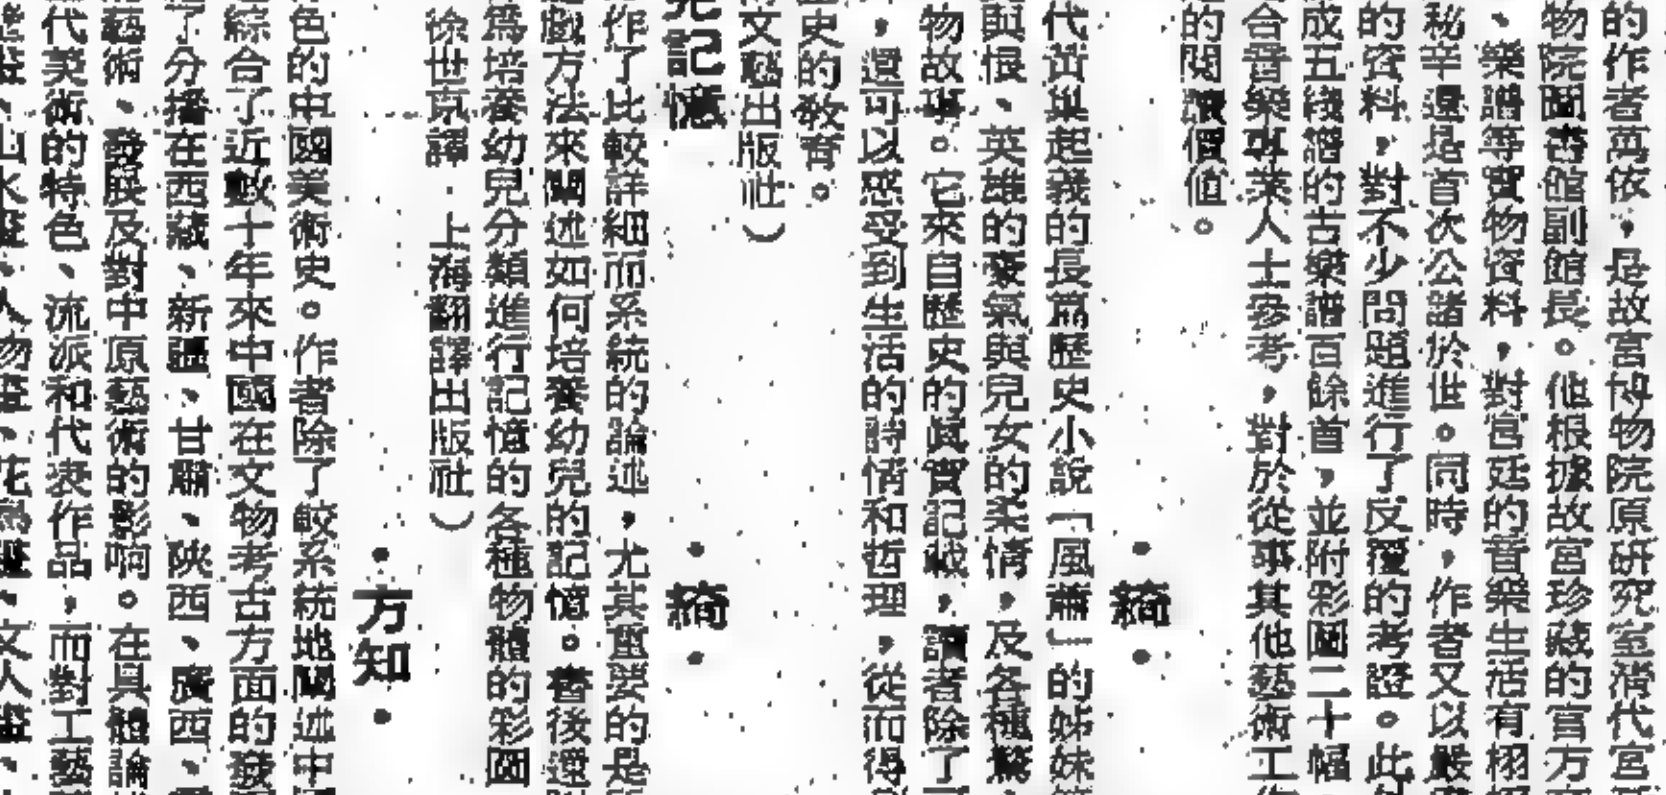 的作者萬依，是故宮博物院原研究室清代宮
物院圖書館副館長。他根據故宮珍藏的官方
、樂譜等實物資料，對宮廷的音樂生活有栩
秘辛還是首次公諸於世。同時，作者又以嚴
的資料，對不少問題進行了反覆的考證。此
成五綫譜的古樂譜百餘首，並附彩圖二十幅
合音樂專業人士參考，對於從事其他藝術工
的閱讀價值。
•綺•
代黃巢起義的長篇歷史小說「風蕭」的姊妹
與恨、英雄的豪氣與兒女的柔情，及各種
物故事。它來自歷史的真實記載，讀者除了
，還可以感受到生活的詩情和哲理，從而得
史的教育。
文藝出版社）
兒記憶
•綺•
作了比較詳細而系統的論述，尤其重要的是
戲方法來闡述如何培養幼兒的記憶。書後還
為培養幼兒分類進行記憶的各種物體的彩圖
徐世京譯·上海翻譯出版社）
•方知•
色的中國美術史。作者除了較系統地闡述中
綜合了近數十年來中國在文物考古方面的發
了分播在西藏、新疆、甘肅、陝西、廣西、
藝術、發展及對中原藝術的影响。在具體論
代美術的特色、流派和代表作品，而對工藝
、山水畫、人物畫、花鳥畫、文人畫、